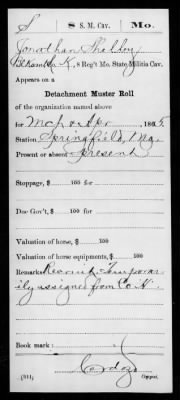 S | 8 S. M. Cav. | Mo.
Jonathan Shelby
Co. K, 8 Reg't Mo. State Militia Cav.
Appears on a
Detachment Muster Roll
of the organization named above
for Mch & Apr, 1865.
Station Springfield, Mo.
Present or absent Present
Stoppage, $ 100 for
Due Gov't, $ 100 for
Valuation of horse, $ 100
Valuation of horse equipments, $ 100
Remarks: Recruit Temporar
ily assigned from Co H.
Book mark:
(311) Copyist.